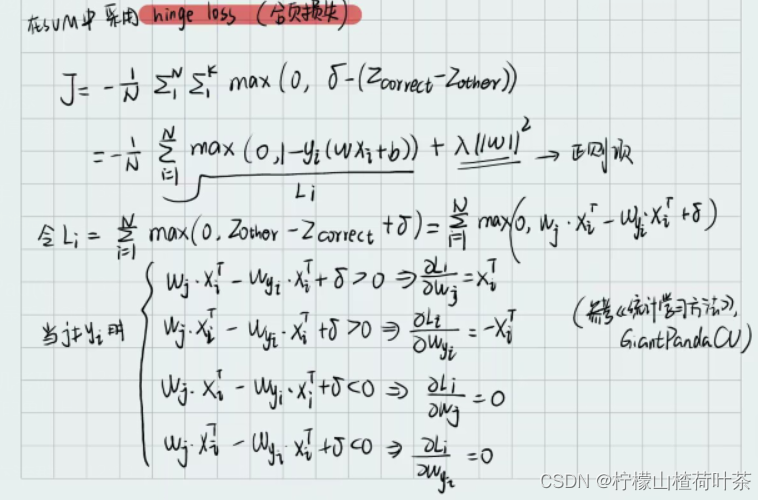 在SVM中采用 hinge loss (合页损失)
J = -1/N Σ₁ᴺ Σ₁ᴷ max(0, δ-(Zcorrect-Zother))
= -1/N Σᵢ₌₁ᴺ max(0, 1-yᵢ(wxᵢ+b)) + λ||w||² → 正则项
Lᵢ
令Lᵢ = Σᵢ₌₁ᴺ max(0, Zother - Zcorrect + δ) = Σᵢ₌₁ᴺ max(0, wⱼ·xᵢᵀ - w_yᵢ·xᵢᵀ + δ)
当j≠yᵢ时
wⱼ·xᵢᵀ - w_yᵢ·xᵢᵀ + δ > 0 ⇒ ∂Lᵢ/∂wⱼ = xᵢᵀ
wⱼ·xᵢᵀ - w_yᵢ·xᵢᵀ + δ > 0 ⇒ ∂Lᵢ/∂w_yᵢ = -xᵢᵀ
wⱼ·xᵢᵀ - w_yᵢ·xᵢᵀ + δ < 0 ⇒ ∂Lᵢ/∂wⱼ = 0
wⱼ·xᵢᵀ - w_yᵢ·xᵢᵀ + δ < 0 ⇒ ∂Lᵢ/∂w_yᵢ = 0
(参考《统计学习方法》,
GiantPandaCV)
CSDN @柠檬山楂荷叶茶